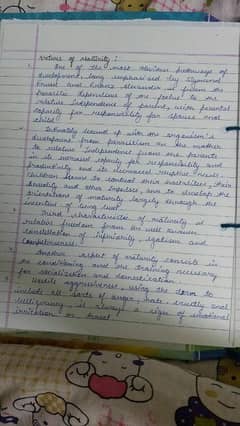 Nature of Maturity:
One of the most obvious pathways of
development, long emphasised by Sigmund
Freud and Franz Alexander is from the
parasitic dependence of the foetus to the
relative independence of parent, with parental
capacity for responsibility for spouse and
child.
Intimately bound up with the organism's
development from parasitism on the mother
to relative independence from the parents
is its increased capacity for responsibility and
productivity and its decreased receptive needs.
Children learn to control their hostilities, their
sexuality and other impulses, and to develop the
orientations of maturity largely through the
incentive of being loved.
Third characteristic of maturity is
relative freedom from the well known
constellation of inferiority, egotism and
competitiveness.
Another aspect of maturity consists in
the conditioning and training necessary
for socialization and domestication.
Hostile aggressiveness, using the term to
include all sorts of anger, hate, cruelty and
belligerency is always a sign of emotional
irritation or threat.